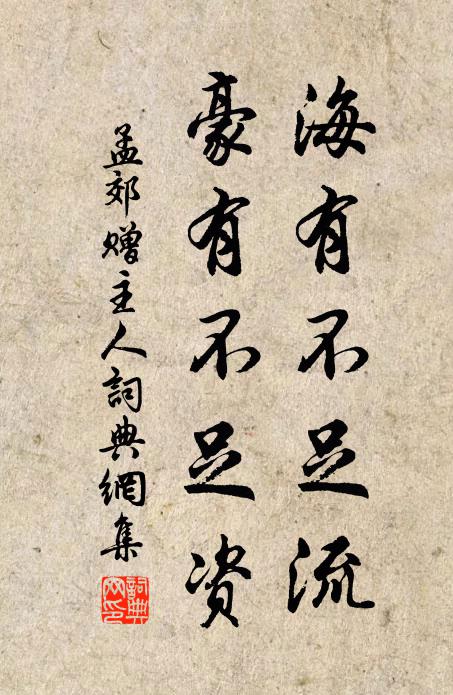 海有不足流
豪有不足资
孟郊赠主人詞典網集
詞典
网印